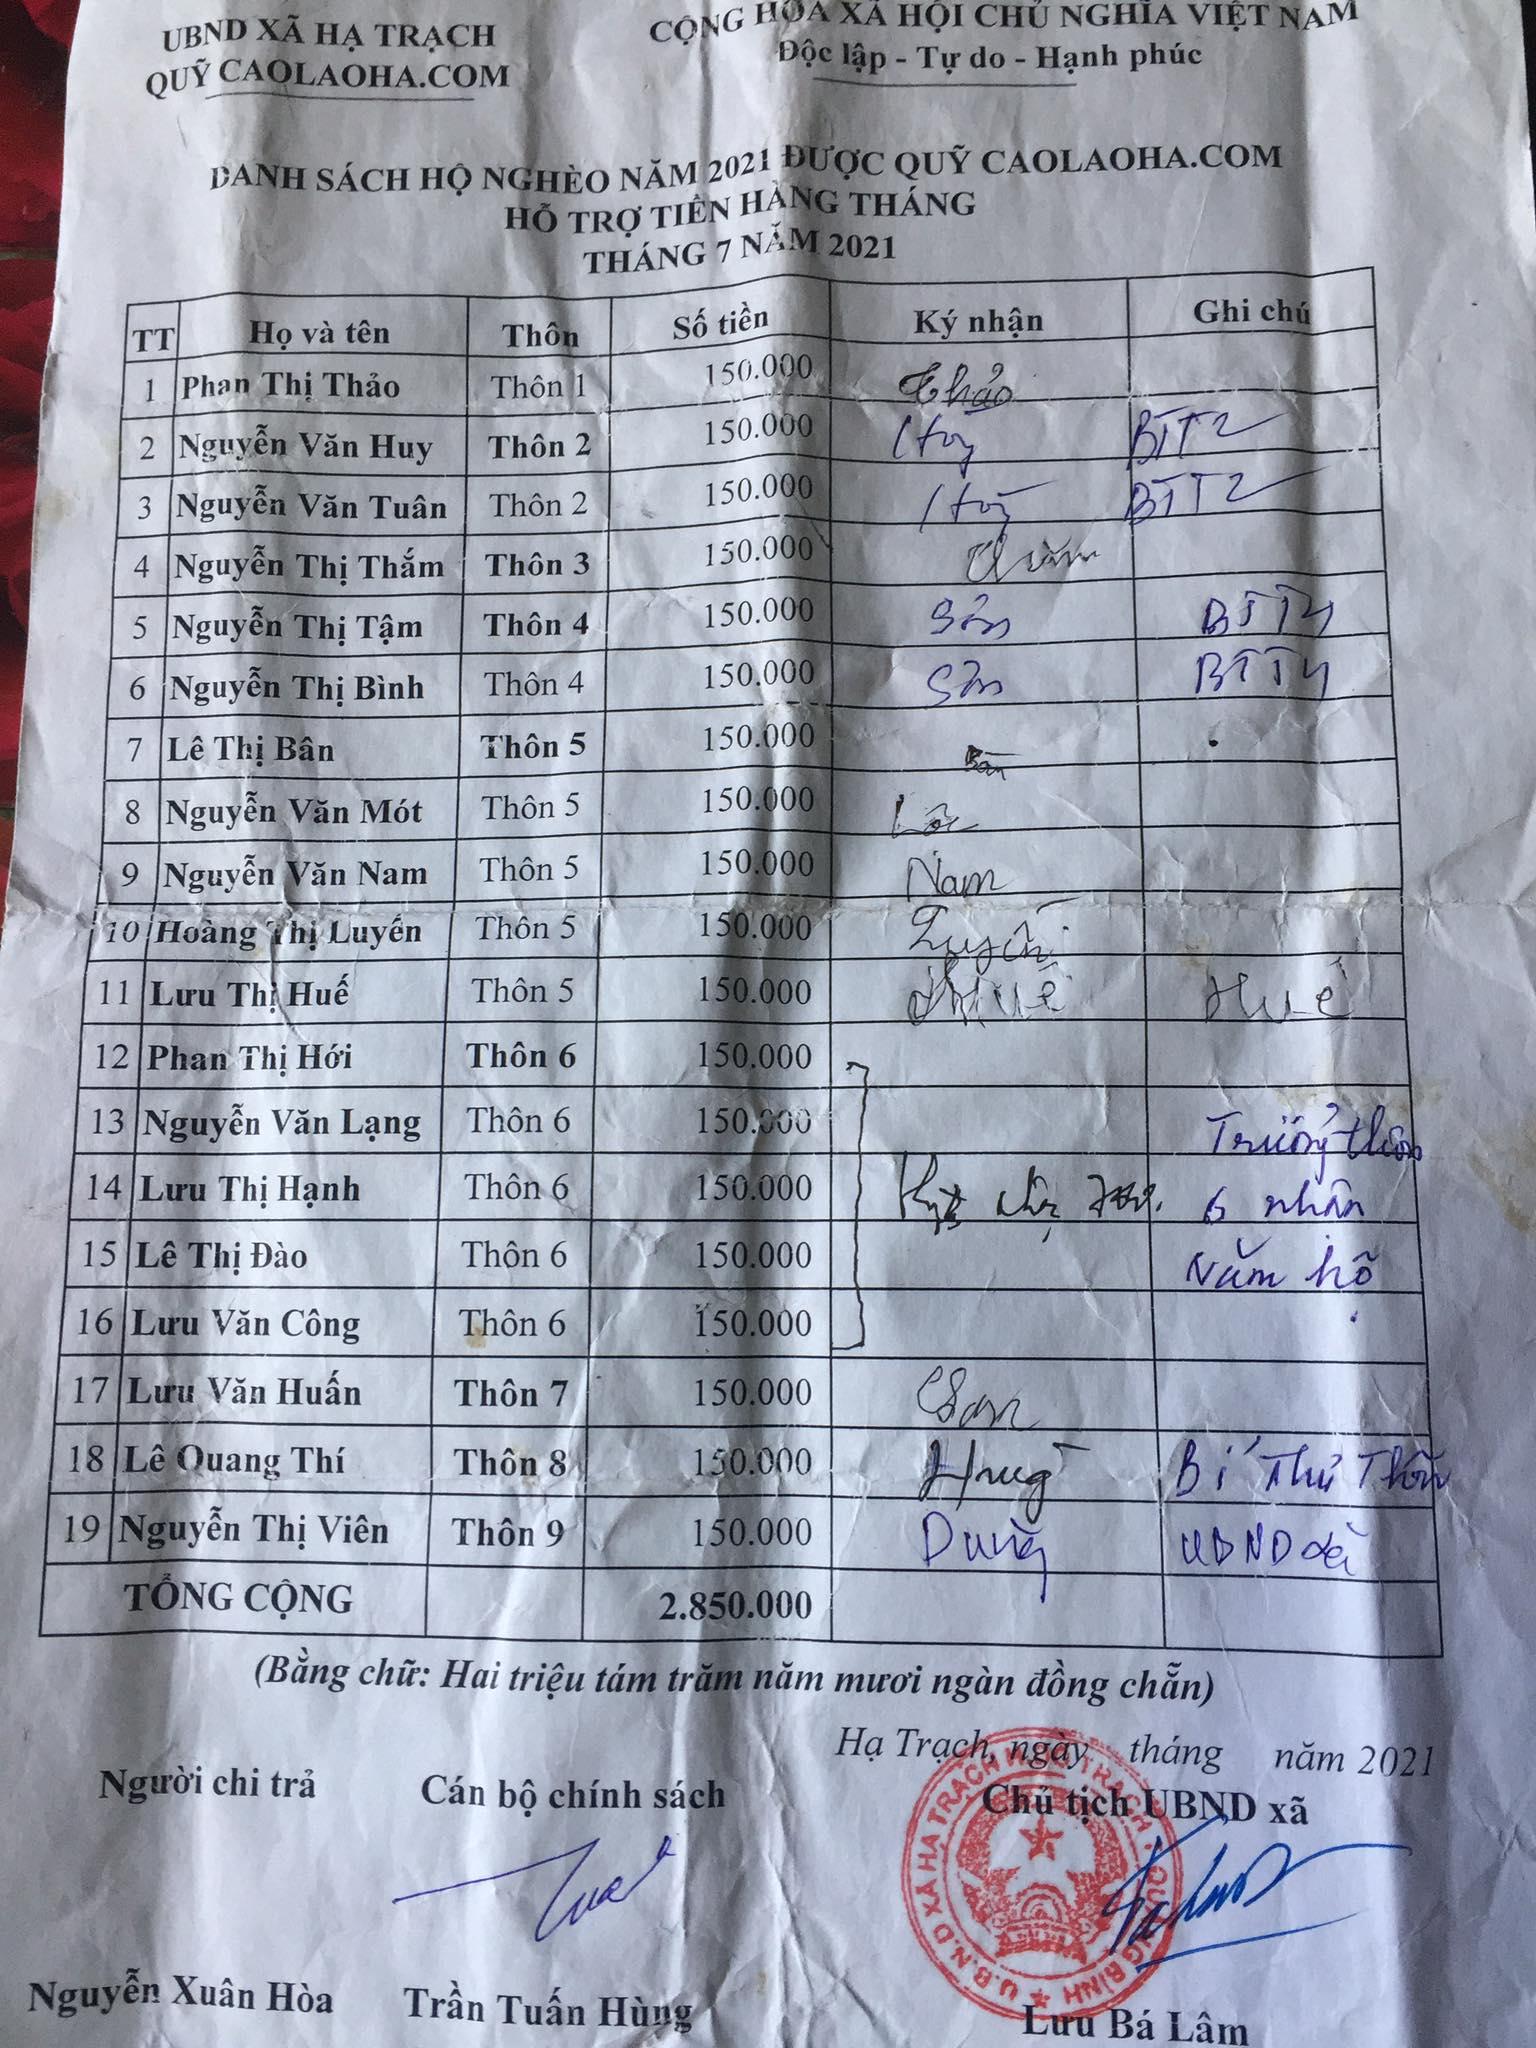 UBND XÃ HẠ TRẠCH
QUỸ CAOLAOHA.COM
CỘNG HÒA XÃ HỘI CHỦ NGHĨA VIỆT NAM
Độc lập - Tự do - Hạnh phúc
DANH SÁCH HỘ NGHÈO NĂM 2021 ĐƯỢC QUỸ CAOLAOHA.COM
HỖ TRỢ TIỀN HÀNG THÁNG
THÁNG 7 NĂM 2021
TT Họ và tên Thôn Số tiền Ký nhận Ghi chú
1 Phan Thị Thảo Thôn 1 150.000 Thảo
2 Nguyễn Văn Huy Thôn 2 150.000 BTT2
3 Nguyễn Văn Tuân Thôn 2 150.000 BTT2
4 Nguyễn Thị Thắm Thôn 3 150.000
5 Nguyễn Thị Tậm Thôn 4 150.000 BTT4
6 Nguyễn Thị Bình Thôn 4 150.000 BTT4
7 Lê Thị Bân Thôn 5 150.000 Bân
8 Nguyễn Văn Mót Thôn 5 150.000
9 Nguyễn Văn Nam Thôn 5 150.000 Nam
10 Hoàng Thị Luyến Thôn 5 150.000 Luyến
11 Lưu Thị Huế Thôn 5 150.000 Huế Huế
12 Phan Thị Hới Thôn 6 150.000
13 Nguyễn Văn Lạng Thôn 6 150.000 Trưởng thôn
14 Lưu Thị Hạnh Thôn 6 150.000 6 nhận
15 Lê Thị Đào Thôn 6 150.000 Năm hộ
16 Lưu Văn Công Thôn 6 150.000
17 Lưu Văn Huấn Thôn 7 150.000
18 Lê Quang Thí Thôn 8 150.000 Bí Thư Thôn
19 Nguyễn Thị Viên Thôn 9 150.000 Dung UBND xã
TỔNG CỘNG 2.850.000
(Bằng chữ: Hai triệu tám trăm năm mươi ngàn đồng chẵn)
Hạ Trạch, ngày tháng năm 2021
Người chi trả Cán bộ chính sách Chủ tịch UBND xã
U.B.N.D XÃ HẠ TRẠCH
Nguyễn Xuân Hòa Trần Tuấn Hùng Lưu Bá Lâm